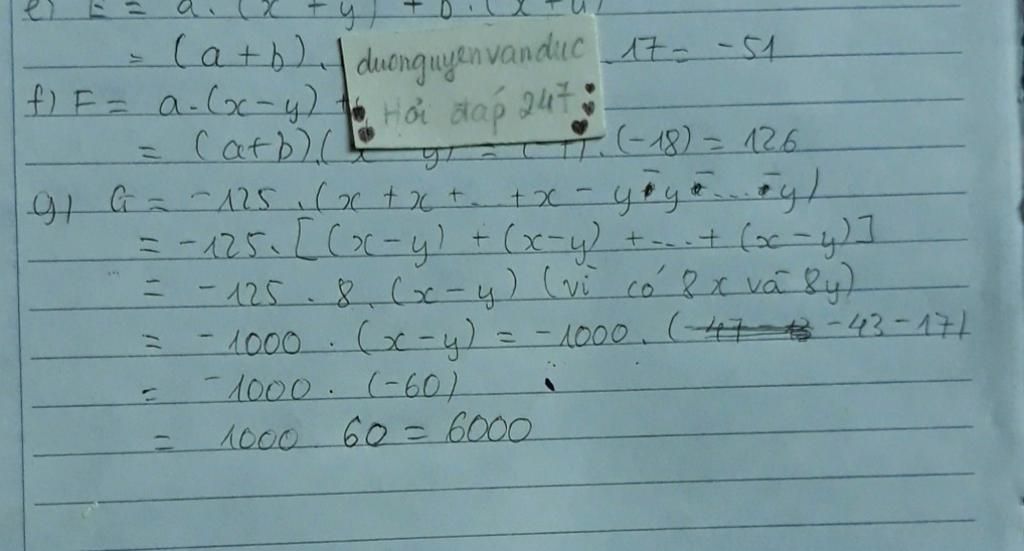 e) E = a.(x + y) + b.(x + y)
= (a + b). 17 = -51
duonguyenvanduc
Hỏi đáp 247
f) F = a.(x - y) +
= (a+b).(x - y) = (-7).(-18) = 126
g) G = -125.(x + x + .. + x - y - y - ... - y)
= -125.[(x-y) + (x-y) + ... + (x-y)]
= -125 . 8 . (x-y) (vì có 8x và 8y)
= -1000 . (x-y) = -1000 . (-43 - 17)
= -1000 . (-60)
= 1000 60 = 6000